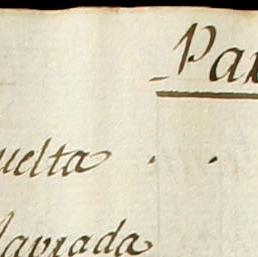 Par
uelta . .
lapiada